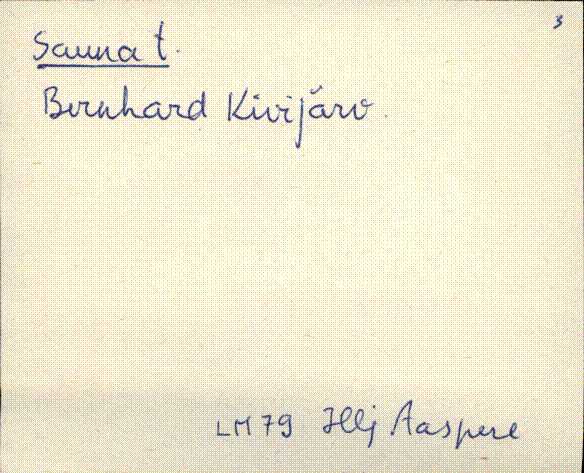 3
Sauna t.
Bernhard Kivijärv.
LM 79 Hlj Aaspere